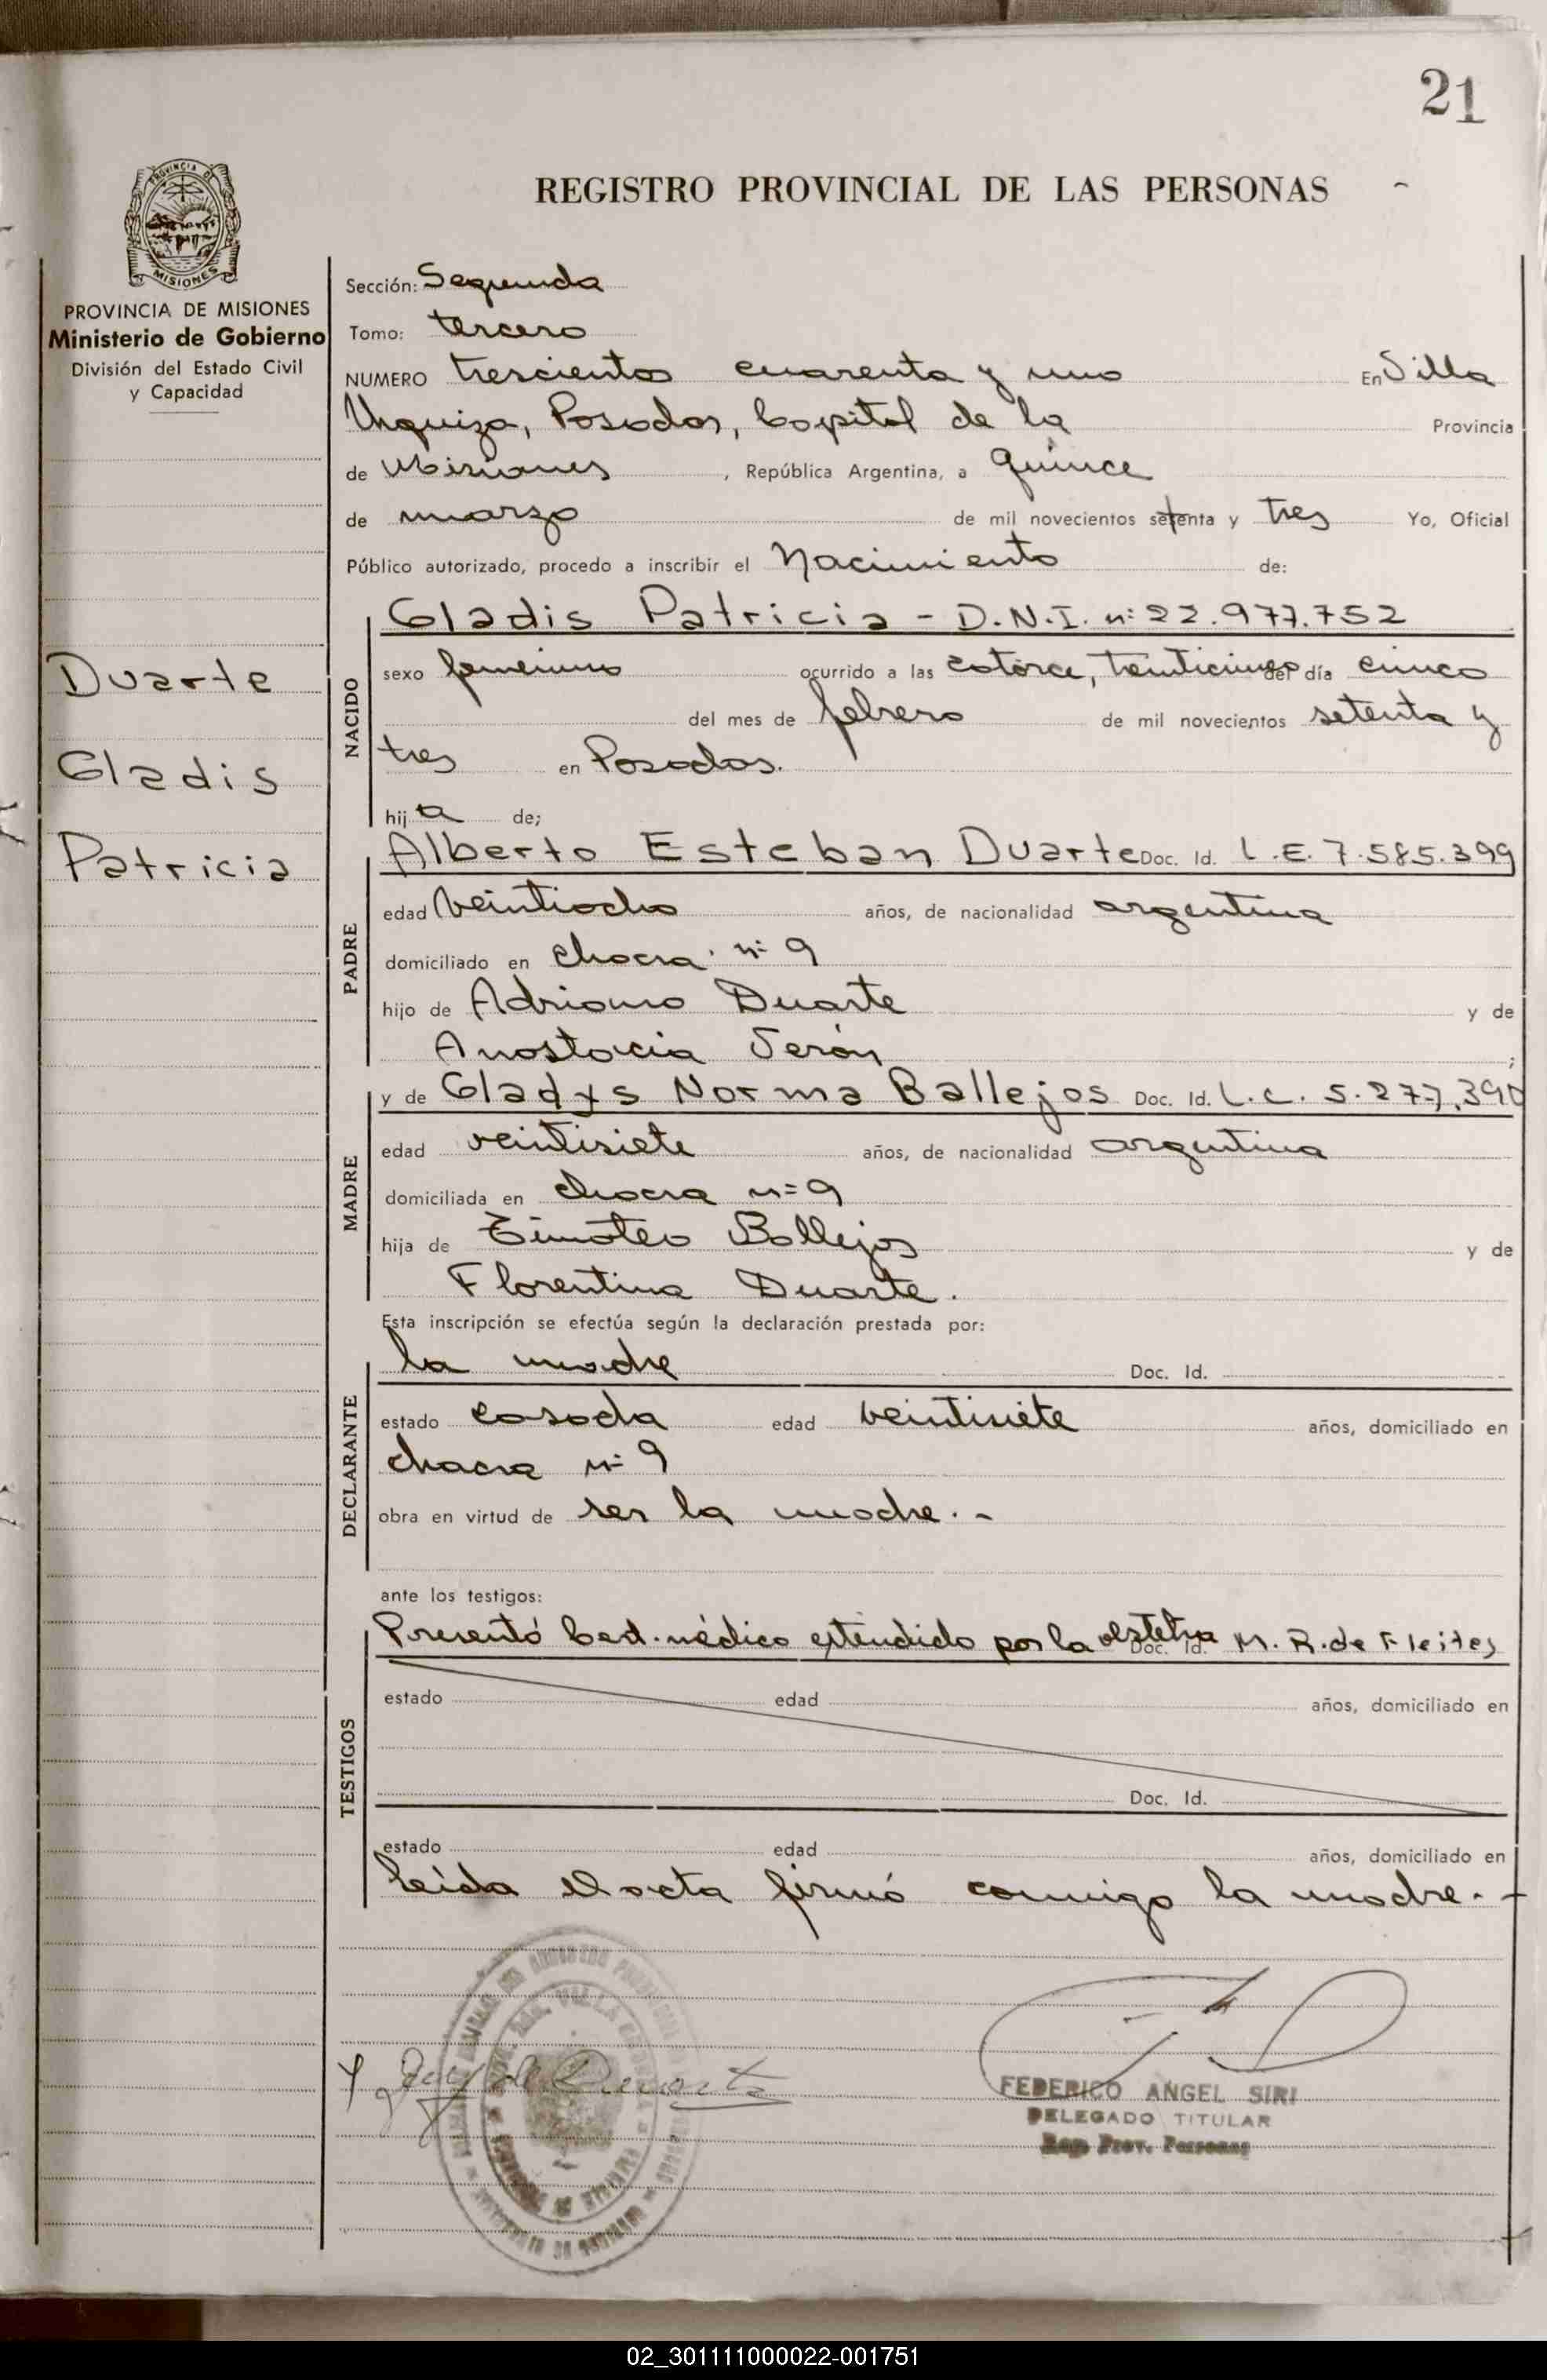 21
REGISTRO PROVINCIAL DE LAS PERSONAS
PROVINCIA DE
MISIONES
PROVINCIA DE MISIONES
Ministerio de Gobierno
División del Estado Civil
y Capacidad
Duarte
Gladis
Patricia
Sección: Segunda
Tomo: tercero
NUMERO trescientos cuarenta y uno En Villa
Urquiza, Posadas, Capital de la Provincia
de Misiones, República Argentina, a quince
de marzo de mil novecientos setenta y tres Yo, Oficial
Público autorizado, procedo a inscribir el Nacimiento de:
NACIDO
Gladis Patricia - D.N.I. nº 22.977.752
sexo femenino ocurrido a las catorce, del día cinco
del mes de febrero de mil novecientos setenta y
tres en Posadas.
hija de;
PADRE
Alberto Esteban Duarte Doc. Id. L.E. 7.585.399
edad veintiocho años, de nacionalidad argentina
domiciliado en chacra nº 9
hijo de Adriano Duarte y de
Anastacia Serón;
MADRE
y de Gladys Norma Ballejos Doc. Id. L.C. 5.277.390
edad veintisiete años, de nacionalidad argentina
domiciliada en chacra nº 9
hija de Timoteo Ballejos y de
Florentina Duarte.
Esta inscripción se efectúa según la declaración prestada por:
DECLARANTE
la madre Doc. Id.
estado casada edad veintisiete años, domiciliado en
chacra nº 9
obra en virtud de ser la madre. -
ante los testigos:
TESTIGOS
Presentó Cert. médico extendido por la obstetra Doc. Id. M. R. de Fleites
estado edad años, domiciliado en
Doc. Id.
estado edad años, domiciliado en
Leída el acta firmó conmigo la madre. -
de Duarte
FEDERICO ANGEL SIRI
DELEGADO TITULAR
Reg. Prov. Personas
02_301111000022-001751